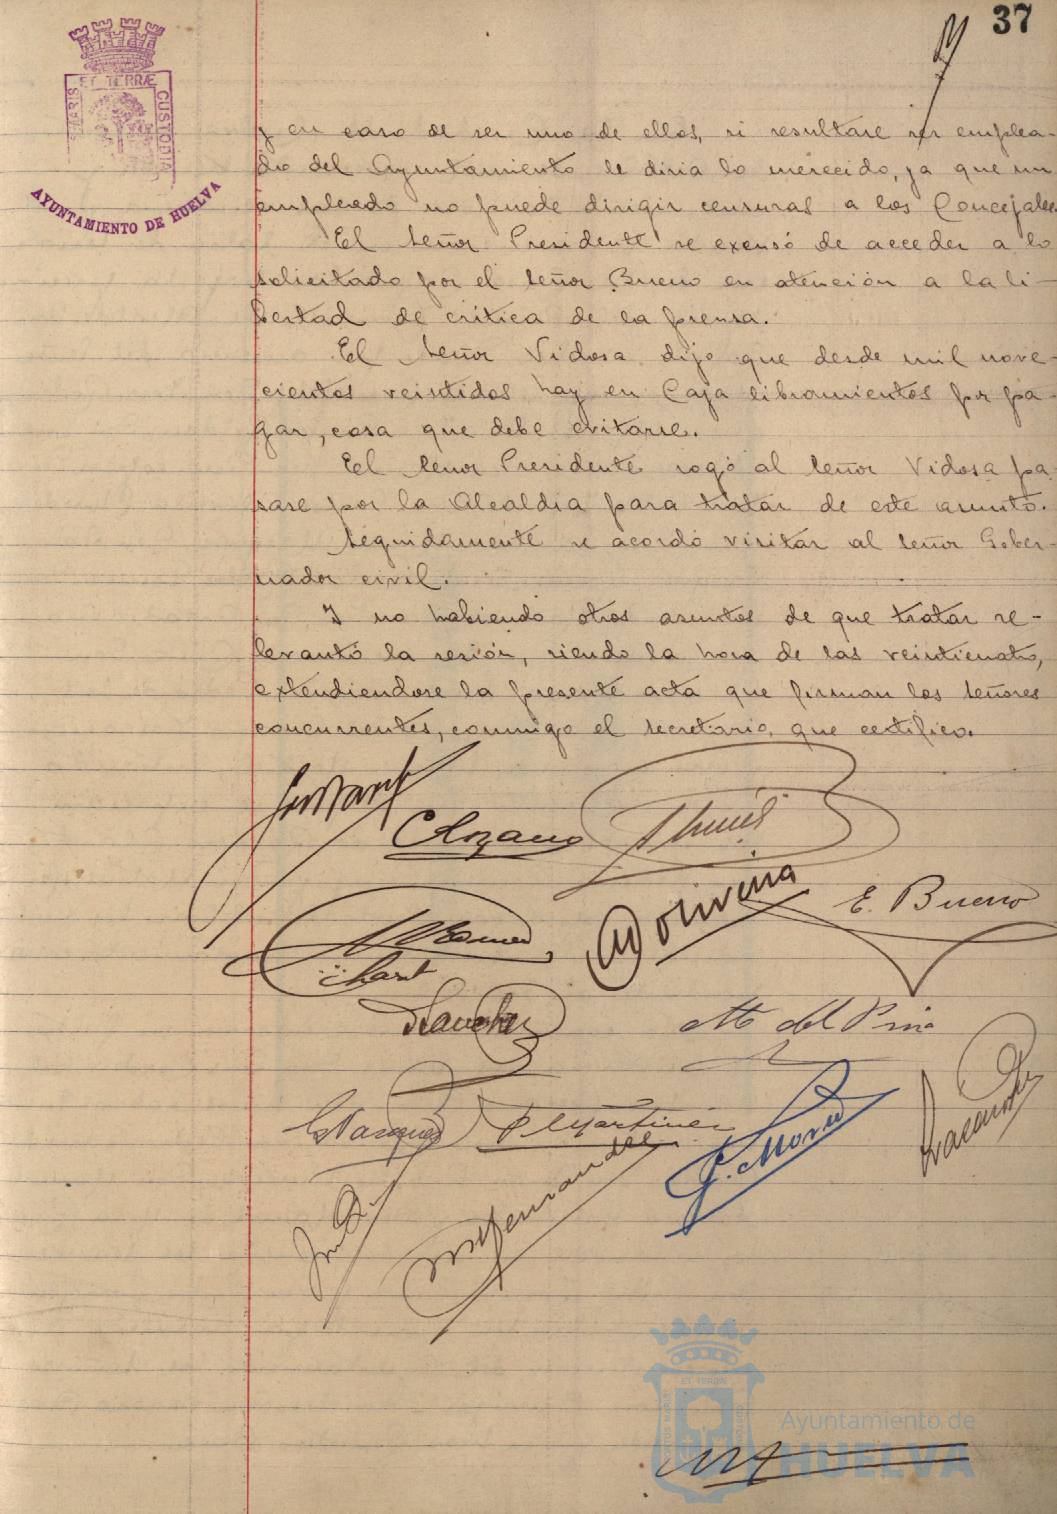 37
ET TERRÆ
MARIS
CUSTODIA
AYUNTAMIENTO DE HUELVA
y en caso de ser uno de ellos, si resultare ser emplea-
do del Ayuntamiento le diria lo merecido, ya que un
empleado no puede dirigir censuras a los Concejales.
El Señor Presidente se excusó de acceder a lo
solicitado por el Señor Bueno en atención a la li-
bertad de crítica de la prensa.
El Señor Vidosa dijo que desde mil nove-
cientos veintidos hay en Caja libramientos por pa-
gar, cosa que debe evitarse.
El Señor Presidente rogó al Señor Vidosa pa
sase por la Alcaldía para tratar de este asunto.
Seguidamente se acordó visitar al Señor Gober-
nador civil.
Y no habiendo otros asuntos de que tratar se
levantó la sesión, siendo la hora de las veinticuatro,
extendiendose la presente acta que firman los Señores
concurrentes, conmigo el Secretario, que certifico.
C Lozano
Oliveira
E. Bueno
Sanchez
M. del Pino
Vazquez
F. Martinez
G. Mora
Hernandez
Ayuntamiento de
HUELVA